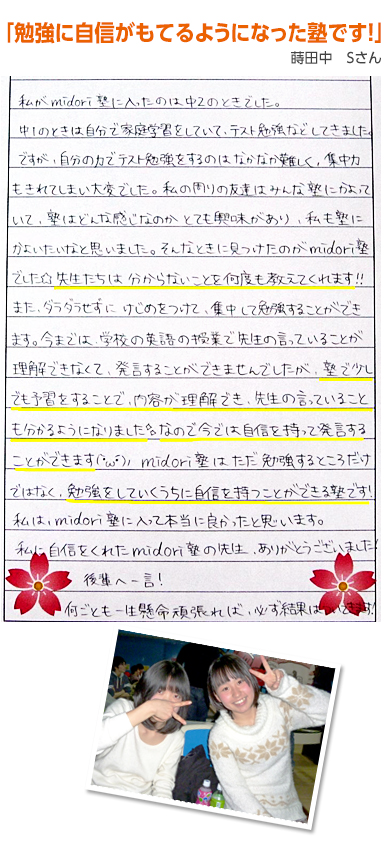 「勉強に自信がもてるようになった塾です!」
蒔田中　Sさん
私がmidori塾に入ったのは中2のときでした。
中1のときは自分で家庭学習をしていて、テスト勉強などしてきました。
ですが、自分の力でテスト勉強をするのはなかなか難しく、集中力
もきれてしまい大変でした。私の周りの友達はみんな塾にかよって
いて、塾はどんな感じなのかとても興味があり、私も塾に
かよいたいなと思いました。そんなときに見つけたのがmidori塾
でした☆先生たちは分からないことを何度も教えてくれます!!
また、ダラダラせずにけじめをつけて、集中して勉強することができ
ます。今までは、学校の英語の授業で先生の言っていることが
理解できなくて、発言することができませんでしたが、塾で少し
でも予習をすることで、内容が理解でき、先生の言っていること
も分かるようになりました。なので今では自信を持って発言する
ことができます(*'ω'*)ノ midori塾はただ勉強するところだけ
ではなく、勉強をしていくうちに自信を持つことができる塾です!
私は、midori塾に入って本当に良かったと思います。
私に自信をくれたmidori塾の先生、ありがとうございました!
後輩へ一言!
何ごとも一生懸命頑張れば、必ず結果はついてきます!